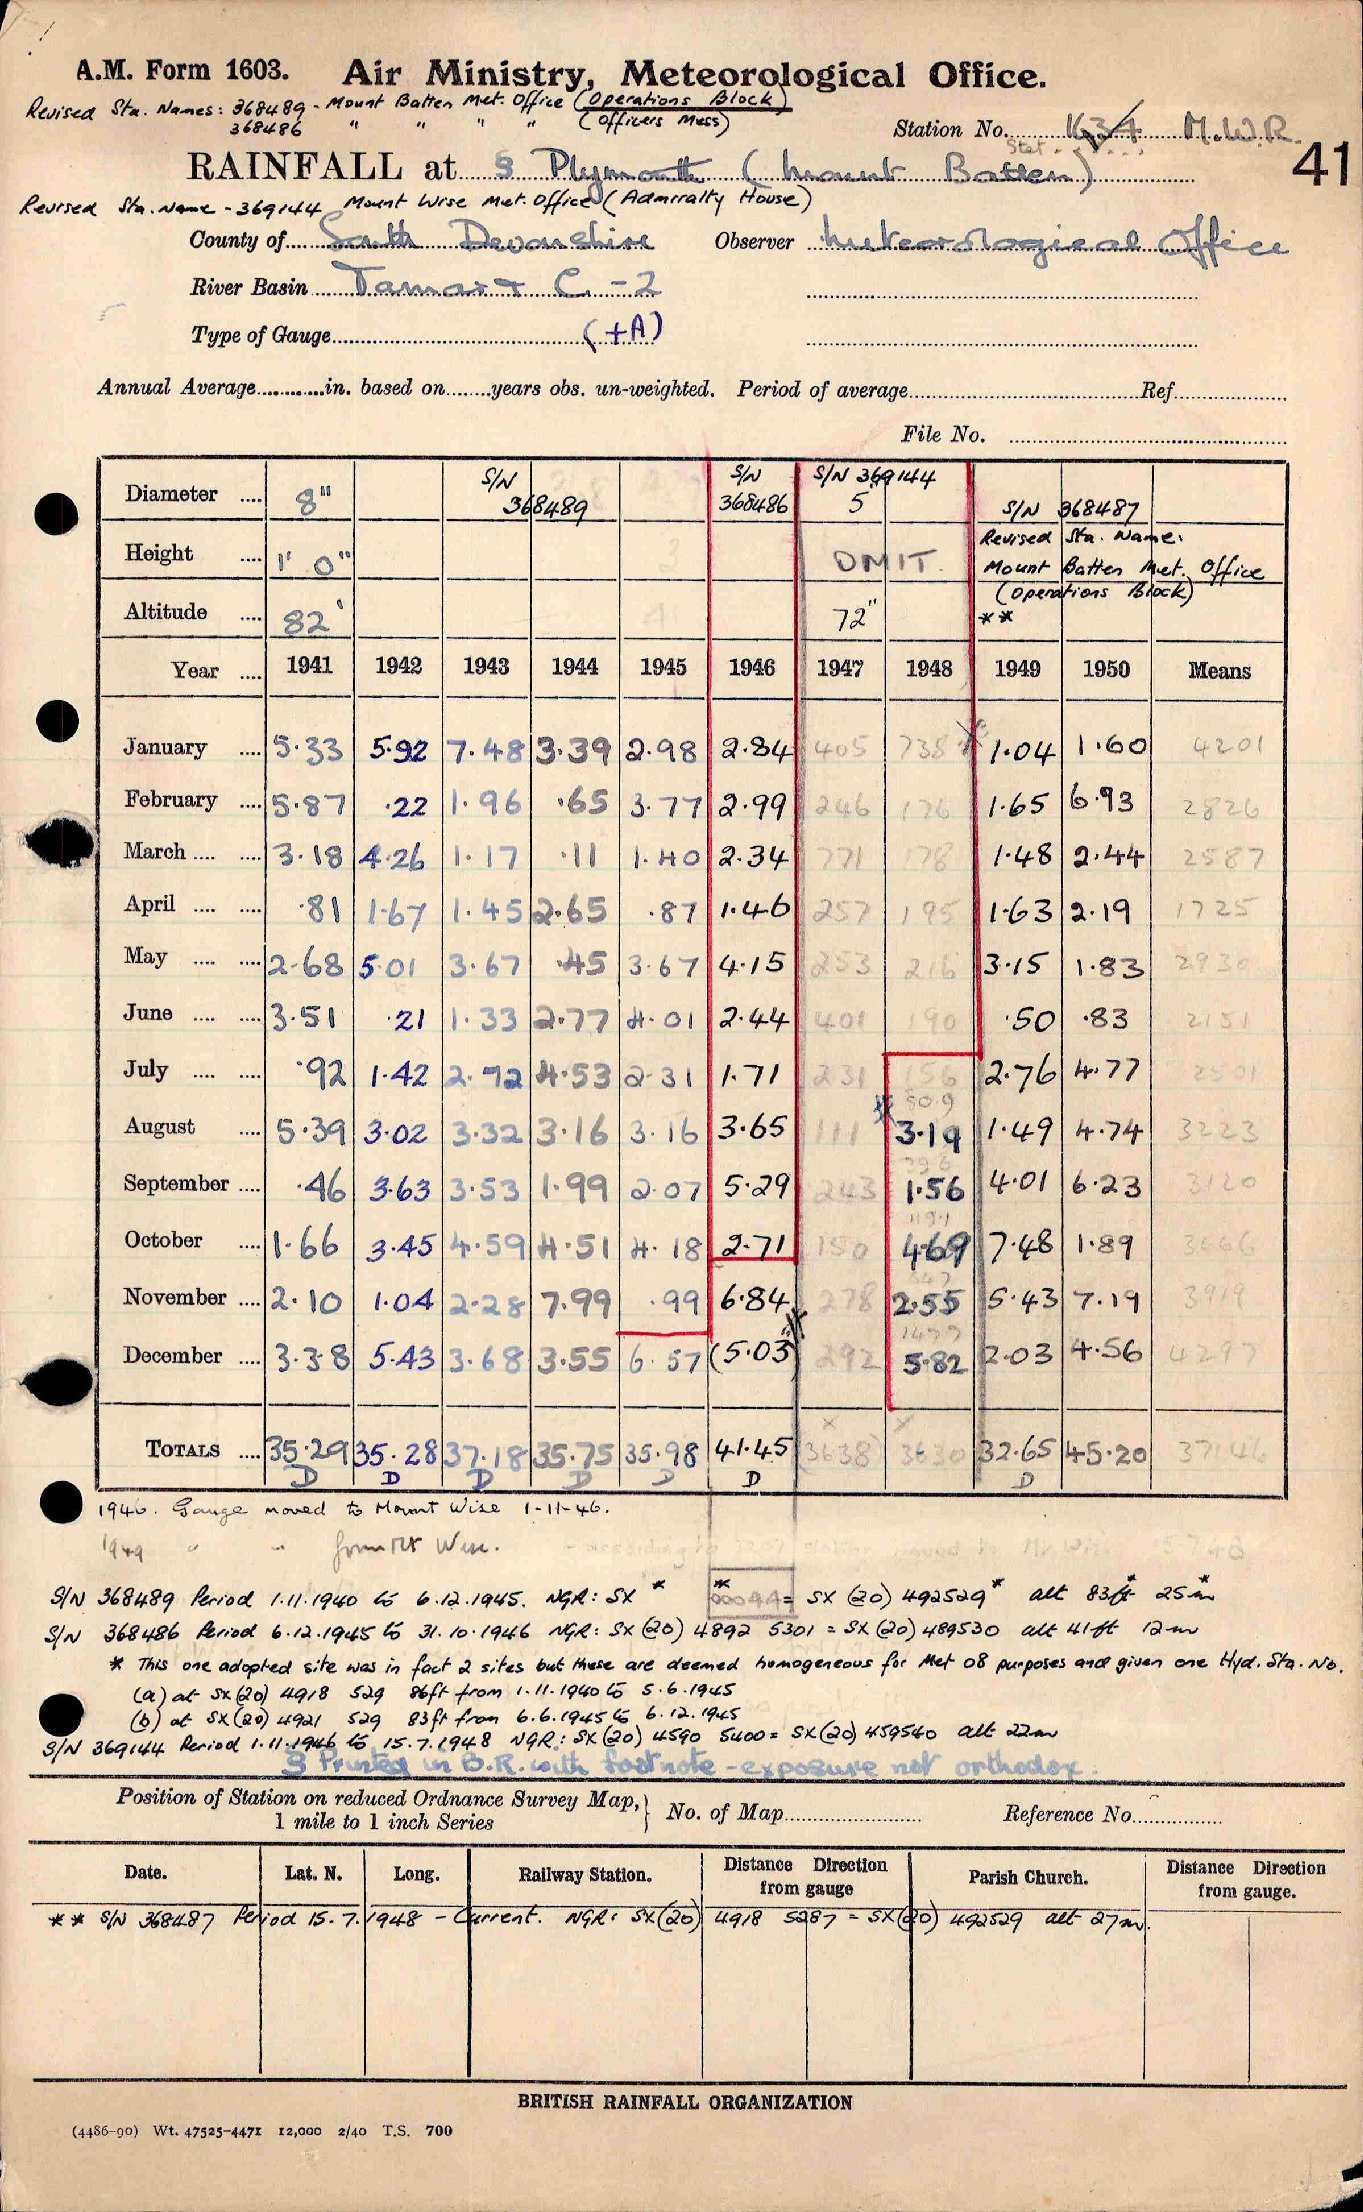 A.M. Form 1603. Air Ministry, Meteorological Office.
Revised Sta. Names: 368489 - Mount Batten Met. Office (Operations Block)
368486 " " " " (Officers Mess)
Station No. 1634 M.W.R.
Stat.
41
RAINFALL at § Plymouth (Mount Batten)
Revised Sta. Name - 369144 Mount Wise Met. Office (Admiralty House)
County of South Devonshire Observer Meteorological Office
River Basin Tamar & C. - 2
Type of Gauge (+A)
Annual Average in. based on years obs. un-weighted. Period of average Ref.
File No.
Diameter 8" S/N 368489 S/N 368486 S/N 369144 5 S/N 368487
Height 1' 0" OMIT. Revised Sta. Name: Mount Batten Met. Office (Operations Block)
Altitude 82' 72" **
Year 1941 1942 1943 1944 1945 1946 1947 1948 1949 1950 Means
January 5.33 5.92 7.48 3.39 2.98 2.84 405 738 1.04 1.60 4201
February 5.87 .22 1.96 .65 3.77 2.99 246 176 1.65 6.93 2826
March 3.18 4.26 1.17 .11 1.40 2.34 771 178 1.48 2.44 2587
April .81 1.67 1.45 2.65 .87 1.46 257 195 1.63 2.19 1725
May 2.68 5.01 3.67 .45 3.67 4.15 253 216 3.15 1.83 2930
June 3.51 .21 1.33 2.77 4.01 2.44 401 190 .50 .83 2151
July .92 1.42 2.72 4.53 2.31 1.71 231 156 2.76 4.77 2501
50.9
August 5.39 3.02 3.32 3.16 3.16 3.65 111 * 3.19 1.49 4.74 3223
39.6
September .46 3.63 3.53 1.99 2.07 5.29 243 1.56 4.01 6.23 3120
119.1
October 1.66 3.45 4.59 4.51 4.18 2.71 150 4.69 7.48 1.89
647
November 2.10 1.04 2.28 7.99 .99 6.84 278 2.55 5.43 7.19 3919
December 3.38 5.43 3.68 3.55 6.57 (5.03) 292 5.82 2.03 4.56 4297
TOTALS 35.29 35.28 37.18 35.75 35.98 41.45 (3638) 3630 32.65 45.20 37146
D D D D D D D
1946. Gauge moved to Mount Wise 1-11-46.
1949 " " from Mt Wise.
S/N 368489 Period 1.11.1940 to 6.12.1945. NGR: SX * * = SX (20) 492529* alt 83ft* 25m*
S/N 368486 Period 6.12.1945 to 31.10.1946 NGR: SX (20) 4892 5301 = SX (20) 489530 alt 41ft 12m
* This one adopted site was in fact 2 sites but these are deemed homogeneous for Met 08 purposes and given one Hyd. Sta. No.
(a) at SX (20) 4918 529 86ft from 1.11.1940 to 5.6.1945
(b) at SX (20) 4921 529 83ft from 6.6.1945 to 6.12.1945
S/N 369144 Period 1.11.1946 to 15.7.1948 NGR: SX (20) 4590 5400 = SX (20) 459540 alt 22m
§ Printed in B.R. with footnote - exposure not orthodox.
Position of Station on reduced Ordnance Survey Map, 1 mile to 1 inch Series } No. of Map Reference No.
Date. Lat. N. Long. Railway Station. Distance Direction from gauge Parish Church. Distance Direction from gauge.
** S/N 368487 Period 15.7.1948 - Current. NGR: SX (20) 4918 5287 = SX (20) 492529 alt 27m.
BRITISH RAINFALL ORGANIZATION
(4486-90) Wt. 47525-4471 12,000 2/40 T.S. 700